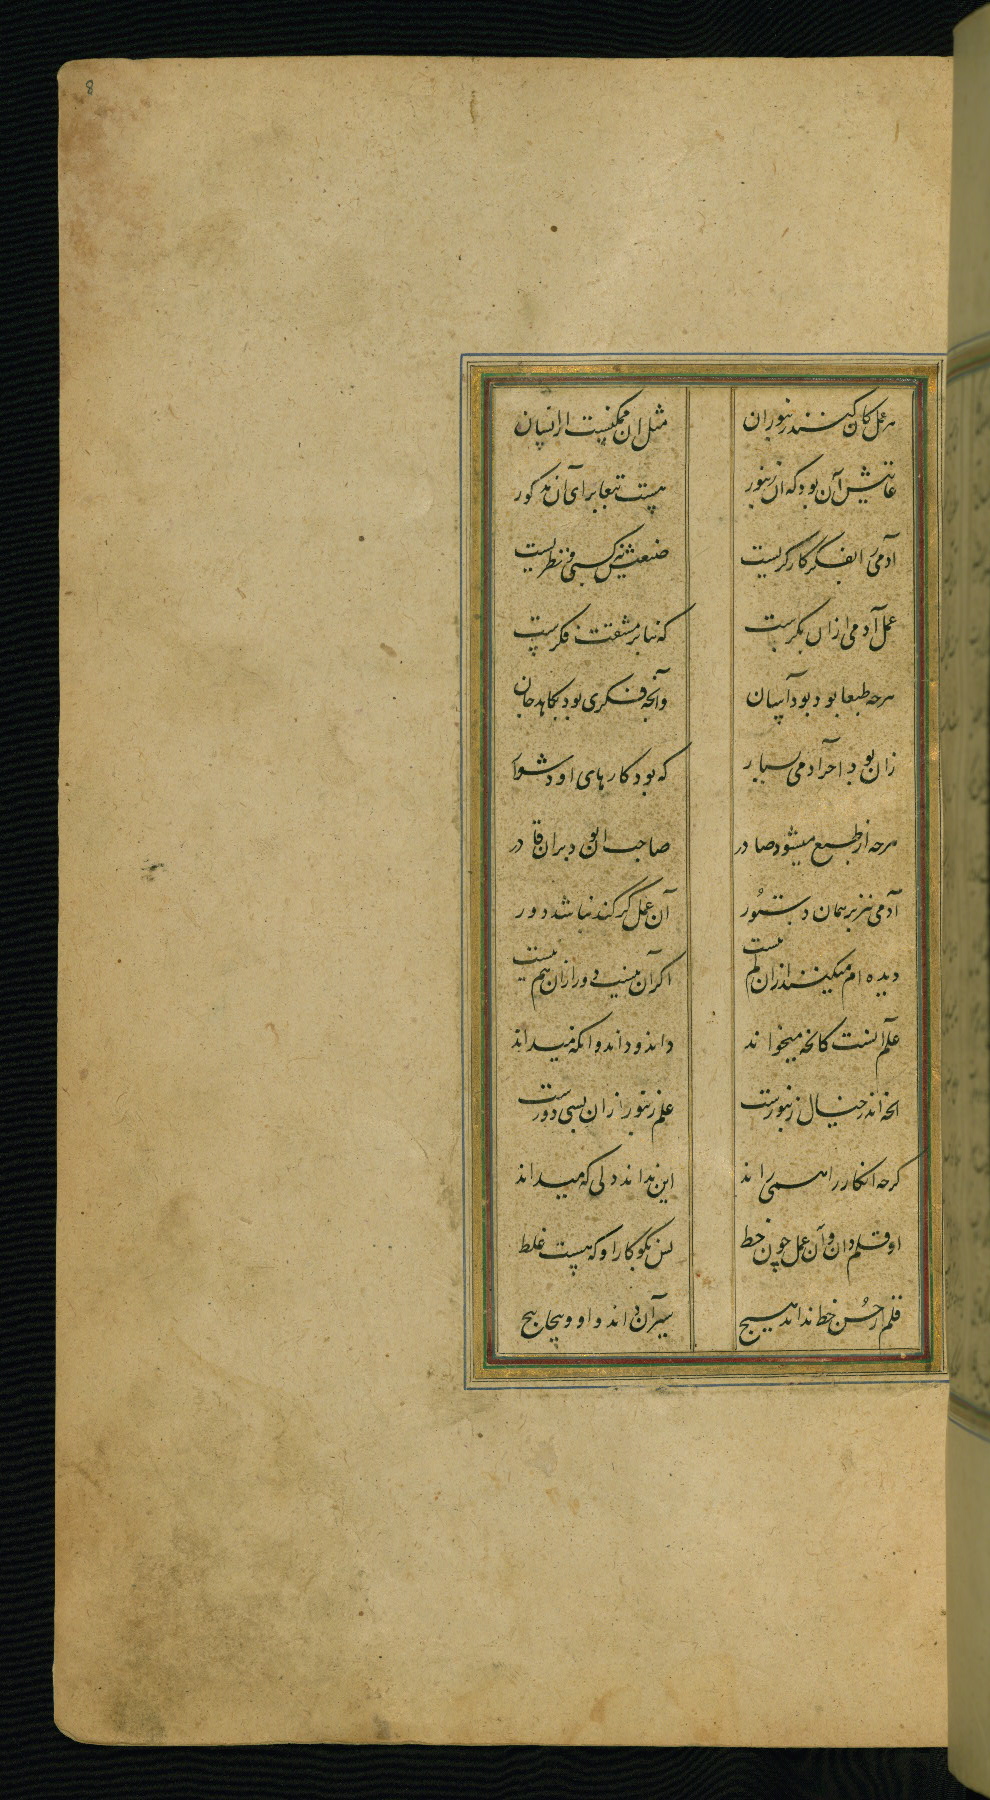 8
هر عمل کان کنند زنبوران مثل ان ممکن نیست از انسان
غایتش آن بود که ان زنبور هست تبعا برای آن مذکور
آدمی را بفکر کار کریست صنعتش نه کسبی و نظریست
عمل آدمی ازان بکرست که بنا بر مشقت فکرست
هرچه طبعا بود بود آسان وآنچه فکری بود بکاهد جان
زان بود اجر آدمی بسیار که بود کارهای او دشوار
هرچه از طبع میشود صادر صاحب ان بود بران قادر
آدمی نیز بر همان دستور آن عمل گر کند نباشد دور
دیده ام میکنند ازان کم نیست اکر آن نیست دور ازان هم نیست
علم آنست کانچه میخواند داند و داند و انکه میداند
انچه اندر خیال زنبورست علم زنبور ازان بسی دورست
کرچه انکار را همی راند این نداند ولی که میداند
او قلم دان و آن عمل چون خط بس نکو کار او که نیست غلط
قلم از حسن خط نداند هیچ سیر آن داند و او و پیچاپیچ